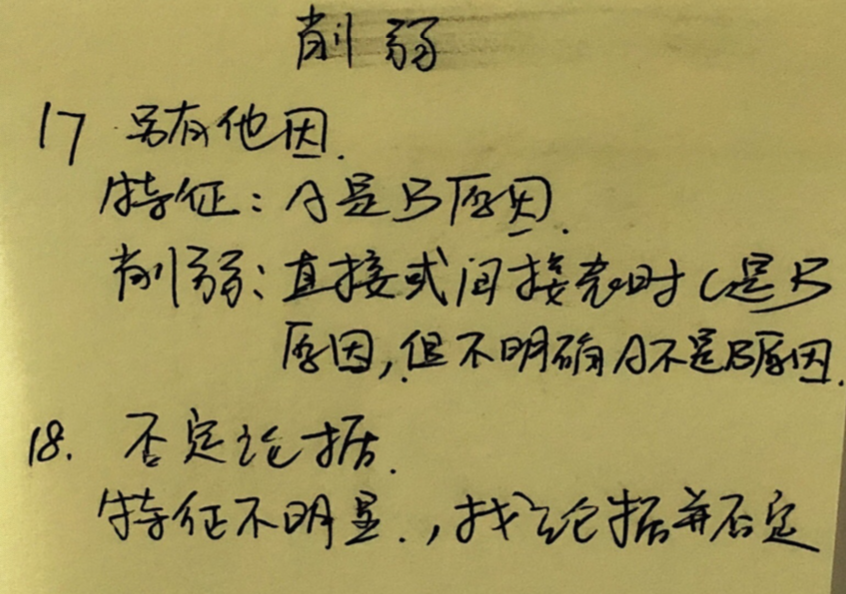 削弱
17 另有他因.
特征：A是B原因.
削弱：直接或间接表明C是B
原因,但不明确A不是B原因.
18. 否定论据.
特征不明显.,找论据并否定